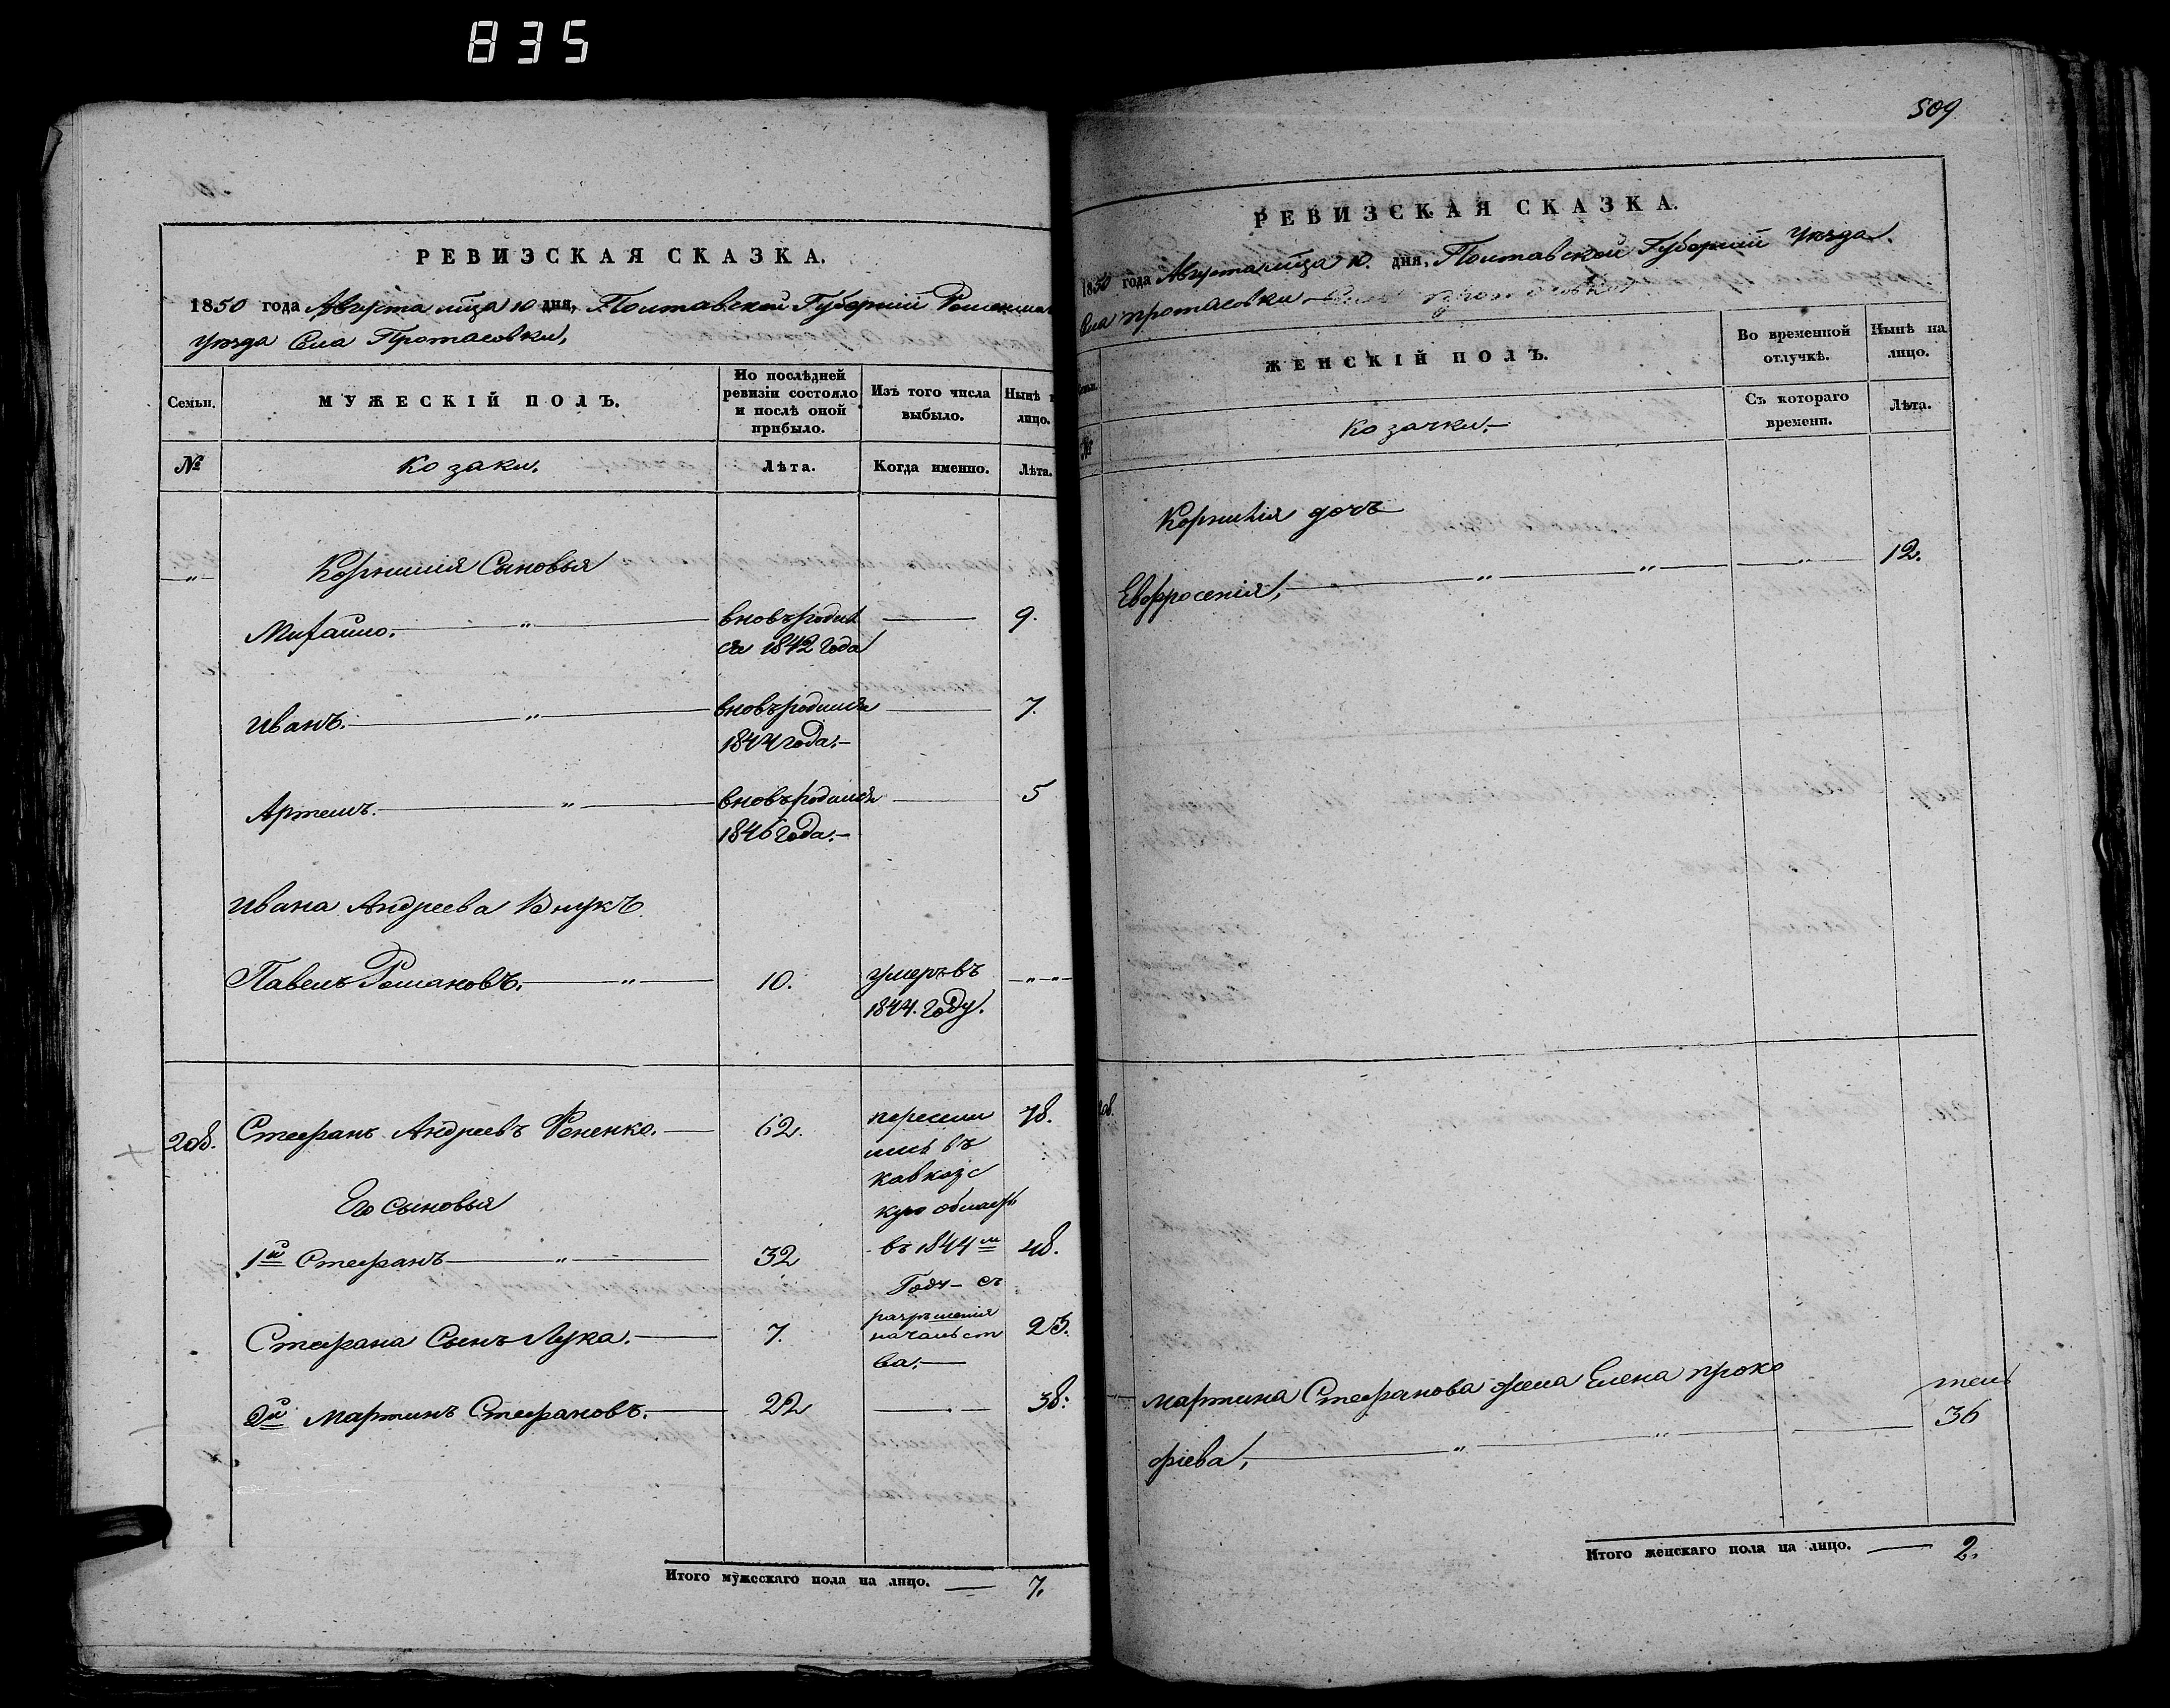 835
РЕВИЗСКАЯ СКАЗКА.
1850 года Августа мѣца 10 дня, Полтавской Губерніи
уѣзда Села Протасовки,
Семьи.
МУЖЕСКІЙ ПОЛЪ.
По послѣдней ревизіи состояло и послѣ оной прибыло.
Изъ того числа выбыло.
Нынѣ лицо.
№
Козаки.
Лѣта.
Когда именно.
Лѣта.
Корнилія Сыновья
Михайло. вновъ родил 9.
ся 1842 года
Иванъ. вновъ родился 7.
1844 года.
Артемъ. вновъ родился 5
1846 года.
Ивана Андреева Внукъ
Павелъ Романовъ. 10. умеръ въ
1844. году.
208. Стефанъ Андреевъ Фененко. 62. пересели 78.
лись въ
кавказс
Его сыновья
кую область
1й Стефанъ 32 въ 1844м 48.
Году с
разрѣшенія
Стефана Сынъ Лука. 7. начальст 23.
ва.
2й Мартинъ Стефановъ. 22 38.
Итого мужескаго пола на лицо. 7.
509
РЕВИЗСКАЯ СКАЗКА.
1850 года Августа мѣца 10. дня, Полтавской Губерніи Уѣзда
Села Протасовки
Семьи.
ЖЕНСКІЙ ПОЛЪ.
Во временной отлучкѣ.
Нынѣ на лицо.
№
Козачки.
Съ котораго времени.
Лѣта.
Корнилія дочь
Евфросенія, 12.
208.
Мартина Стефанова жена Елена Проко
фіева, 36
Итого женскаго пола на лицо. 2.